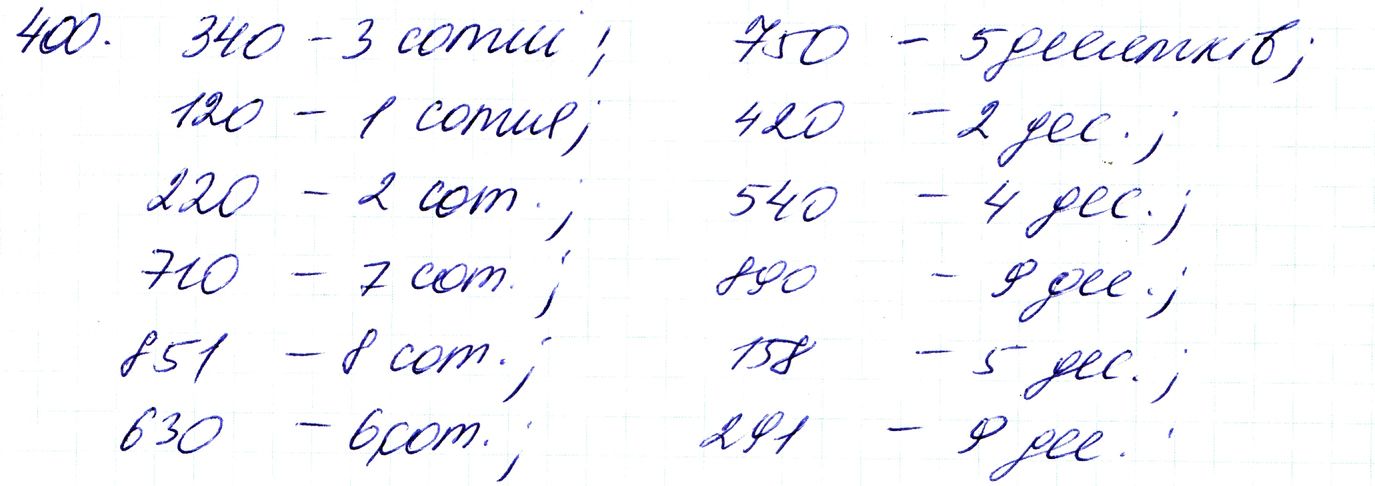 400. 340 – 3 сотні; 750 – 5 десятків;
120 – 1 сотня; 420 – 2 дес.;
220 – 2 сот.; 540 – 4 дес.;
710 – 7 сот.; 890 – 9 дес.;
851 – 8 сот.; 158 – 5 дес.;
630 – 6 сот.; 291 – 9 дес.